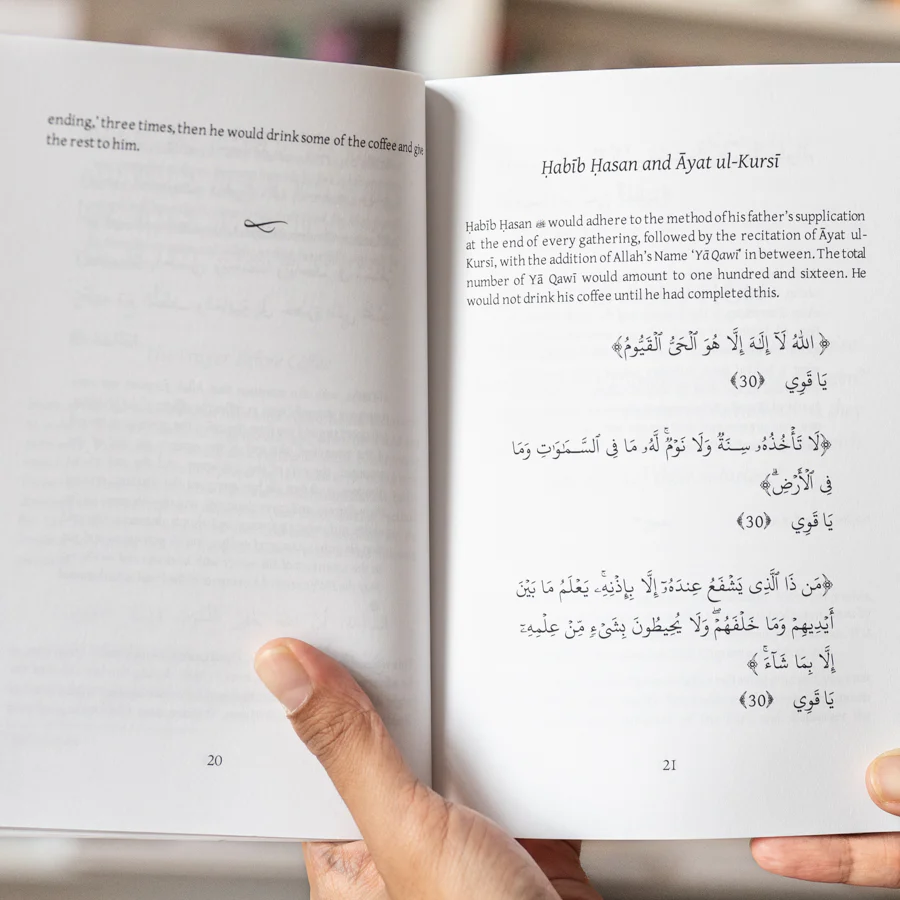 ending,' three times, then he would drink some of the coffee and give
the rest to him.
20
Ḥabīb Ḥasan and Āyat ul-Kursī
Ḥabīb Ḥasan would adhere to the method of his father's supplication
at the end of every gathering, followed by the recitation of Āyat ul-
Kursī, with the addition of Allah's Name 'Yā Qawī' in between. The total
number of Yā Qawī would amount to one hundred and sixteen. He
would not drink his coffee until he had completed this.
﴿ اللهُ لَآ إِلَـٰهَ إِلَّا هُوَ ٱلْحَىُّ ٱلْقَيُّومُ﴾
يَا قَوِي ﴿30﴾
﴿لَا تَأْخُذُهُۥ سِنَةٌ وَلَا نَوْمٌ ۚ لَّهُۥ مَا فِى ٱلسَّمَـٰوَٰتِ وَمَا
فِى ٱلْأَرْضِ ۗ﴾
يَا قَوِي ﴿30﴾
﴿مَن ذَا ٱلَّذِى يَشْفَعُ عِندَهُۥٓ إِلَّا بِإِذْنِهِۦ ۚ يَعْلَمُ مَا بَيْنَ
أَيْدِيهِمْ وَمَا خَلْفَهُمْ ۖ وَلَا يُحِيطُونَ بِشَىْءٍ مِّنْ عِلْمِهِۦٓ
إِلَّا بِمَا شَآءَ ۚ ﴾
يَا قَوِي ﴿30﴾
21